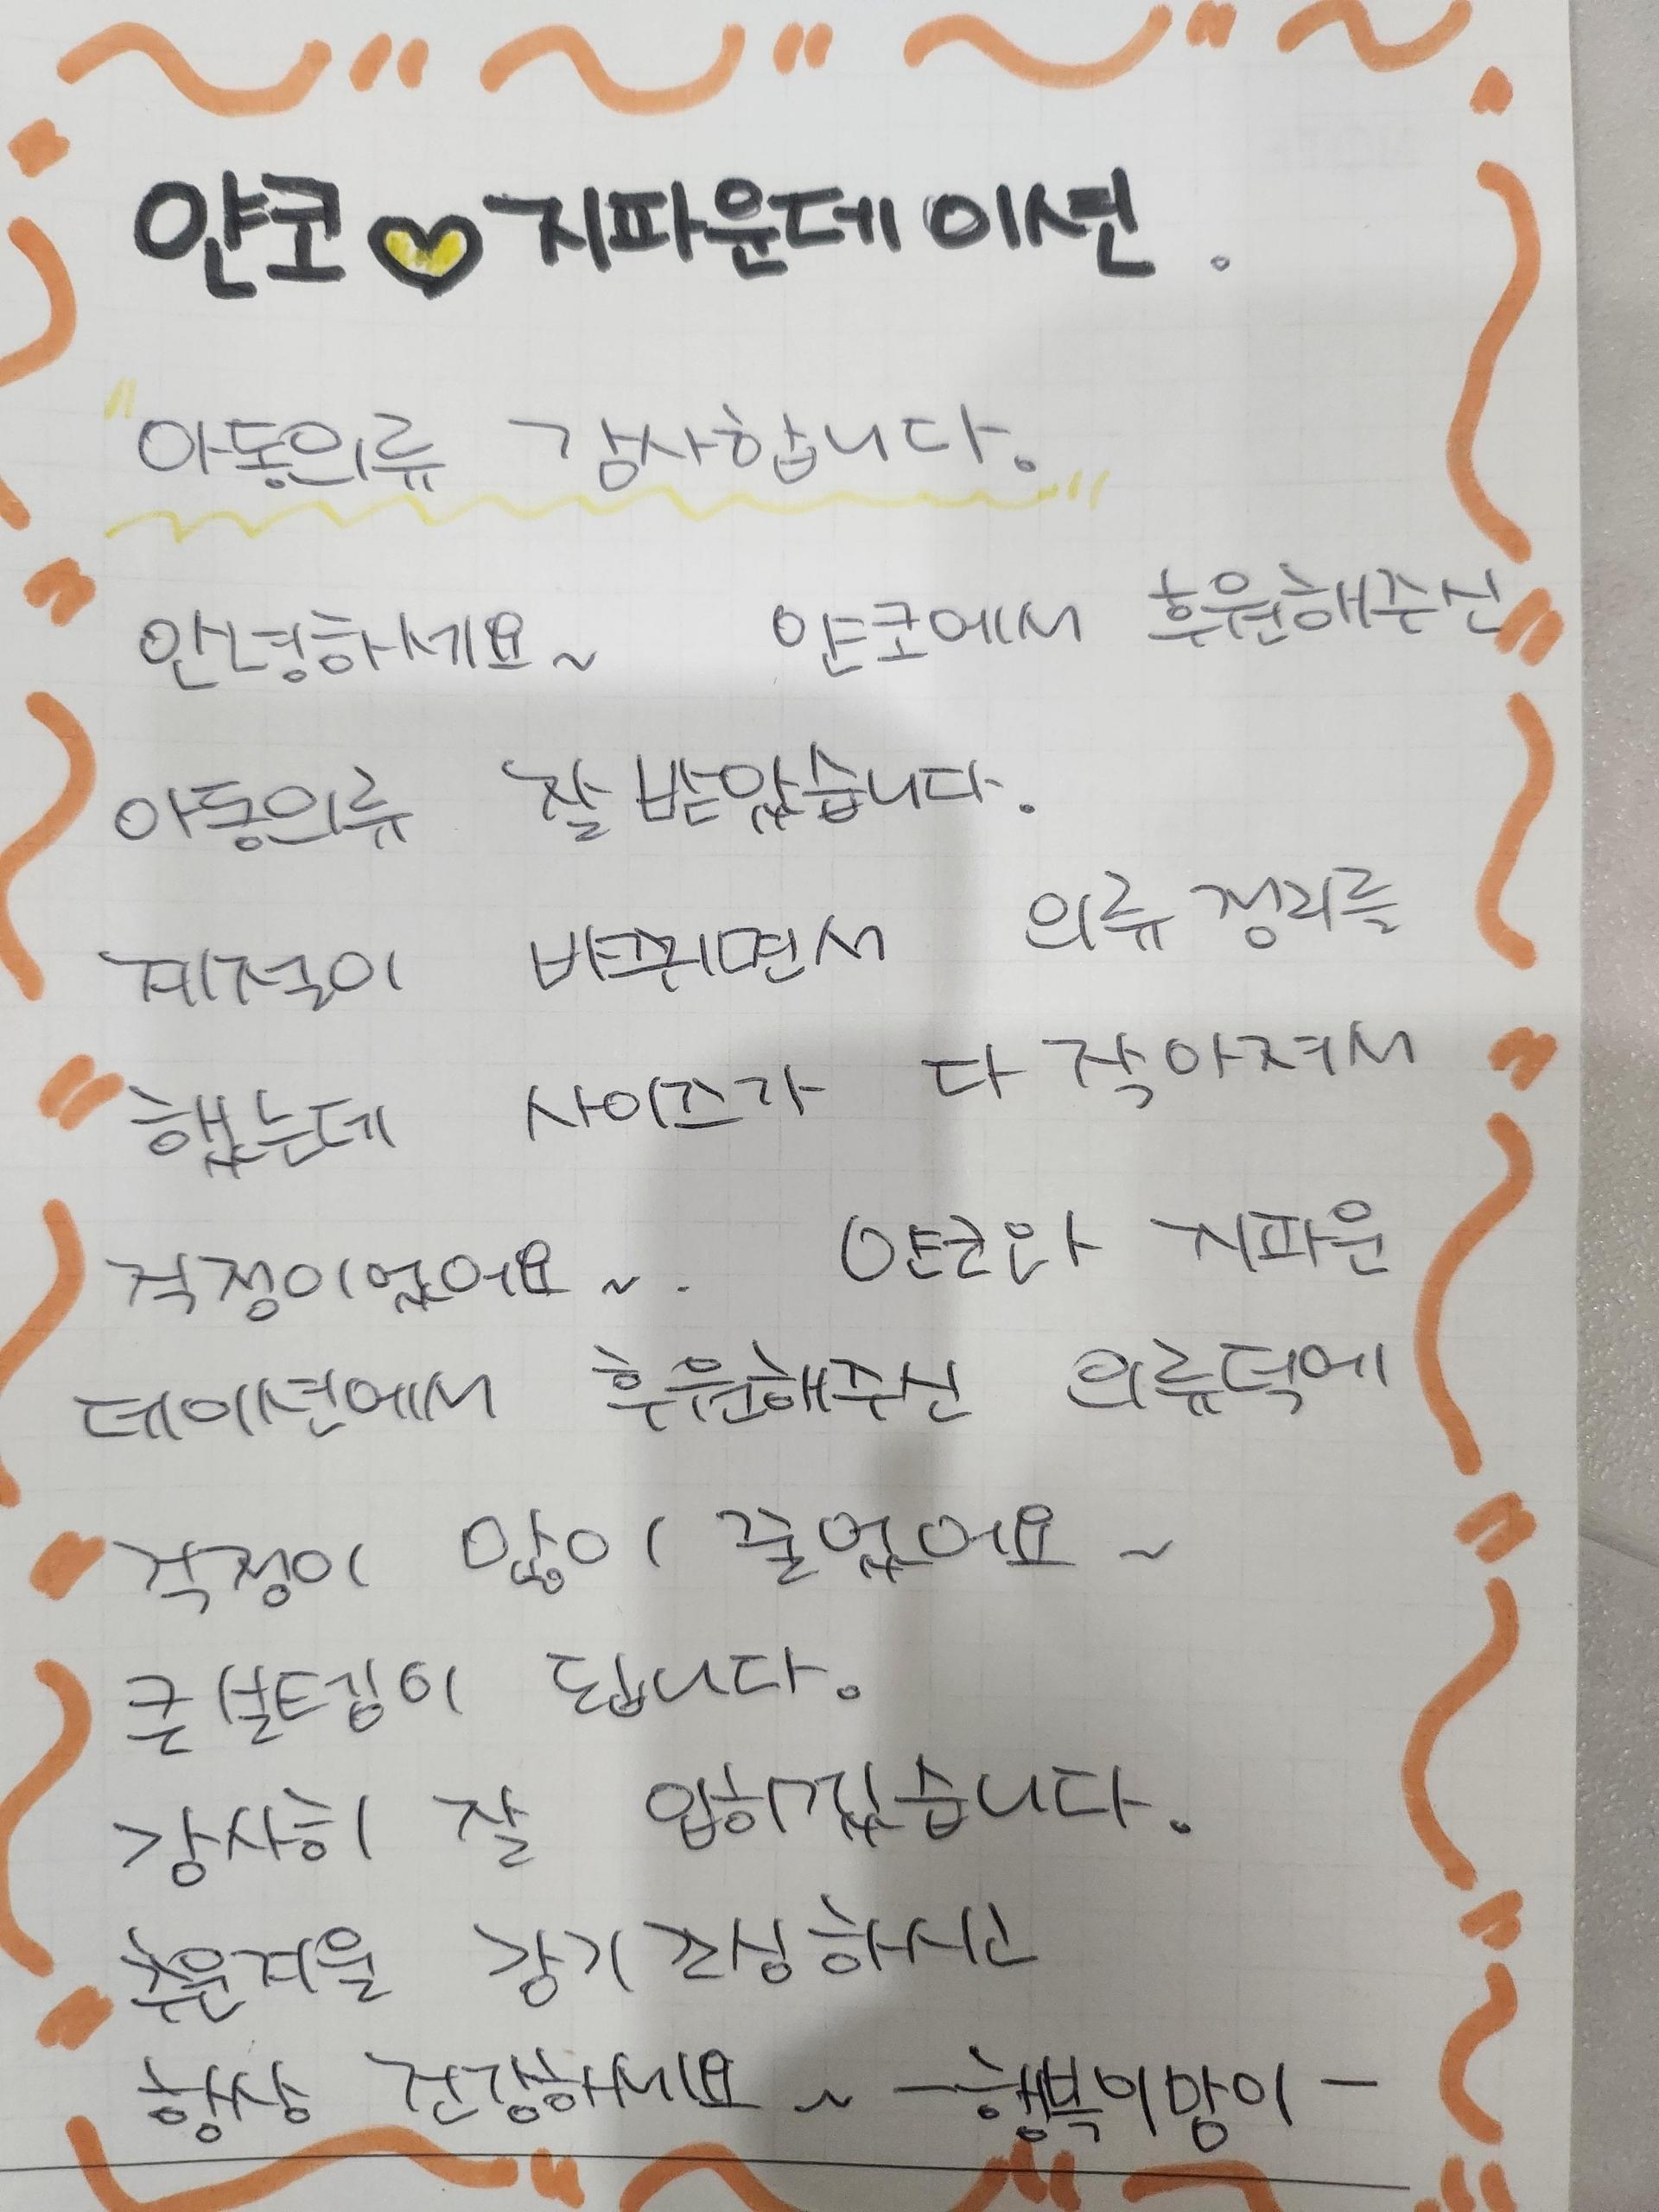 얀코♡지파운데이션.
"아동의류 감사합니다."
안녕하세요~ 얀코에서 후원해주신
아동의류 잘 받았습니다.
계절이 바뀌면서 의류 정리를
했는데 사이즈가 다 작아져서
걱정이었어요~. 얀코와 지파운
데이션에서 후원해주신 의류덕에
걱정이 많이 줄었어요~
큰 보탬이 됩니다.
감사히 잘 입히겠습니다.
추운겨울 감기조심하시고
항상 건강하세요~ -행복이맘이-